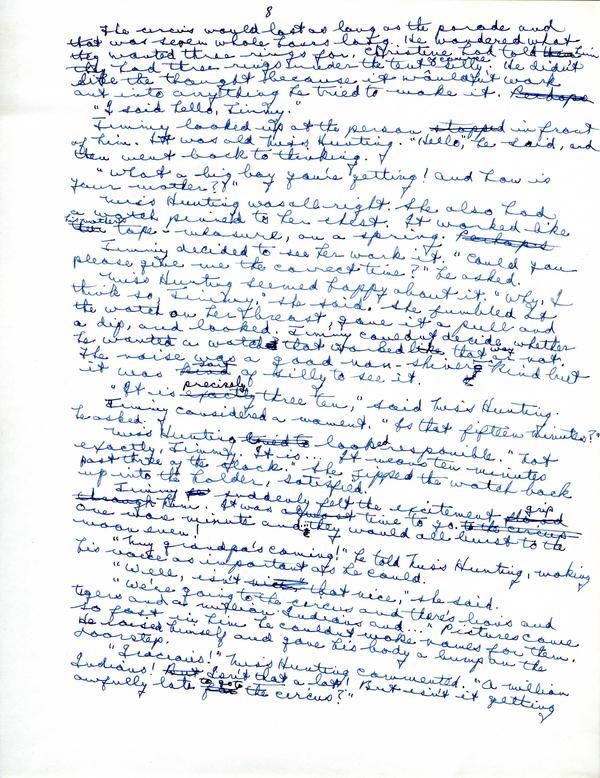 8
The circus would last as long as the parade and
that was seven whole hours long. He wondered what
they wanted three rings for. Christine had told him
they had three rings under the tent. He didn't
like the thought because it wouldn't work
out into anything he tried to make it. Perhaps
"I said hello, Jimmy."
Jimmy looked up at the person stopped in front
of him. It was old Miss Hunting. "Hello," he said, and
then went back to thinking.
"What a big boy you're getting! And how is
your mother?"
Miss Hunting was all right. She also had
a watch pinned to her chest. It worked like
his mother's tape-measure, on a spring. Perhaps
Jimmy decided to see her work it. "Could you
please give me the correct time?" he asked.
Miss Hunting seemed happy about it. "Why, I
think so, Jimmy," she said. She fumbled at
the watch on her breast, gave it a pull and
a dip, and looked. Jimmy couldn't decide whether
he wanted a watch that worked like that or not.
The noise was a good non-shivery kind but
it was kind sort of silly to see it.
precisely
"It is exactly three ten," said Miss Hunting.
Jimmy considered a moment. "Is that fifteen minutes?"
he asked.
Miss Hunting tried to looked responsible. "Not
exactly, Jimmy. It is... It means ten minutes
past three of the clock." She zipped the watch back
up into the holder, satisfied.
Jimmy suddenly felt the excitement grip
through him. It was almost time to go to the circus
One more minute and they would all burst to the
moon even!
"My grandpa's coming!" he told Miss Hunting, making
his voice as important as he could.
"Well, isn't that nice," she said.
"We're going to the circus and there's lions and
tigers and a million Indians and..." Pictures came
so fast in him he couldn't make names for them.
He raised himself and gave his body a bump on the
doorstep.
"Gracious!" Miss Hunting commented. "A million
Indians! But Isn't that a lot! But isn't it getting
awfully late to go to the circus?"